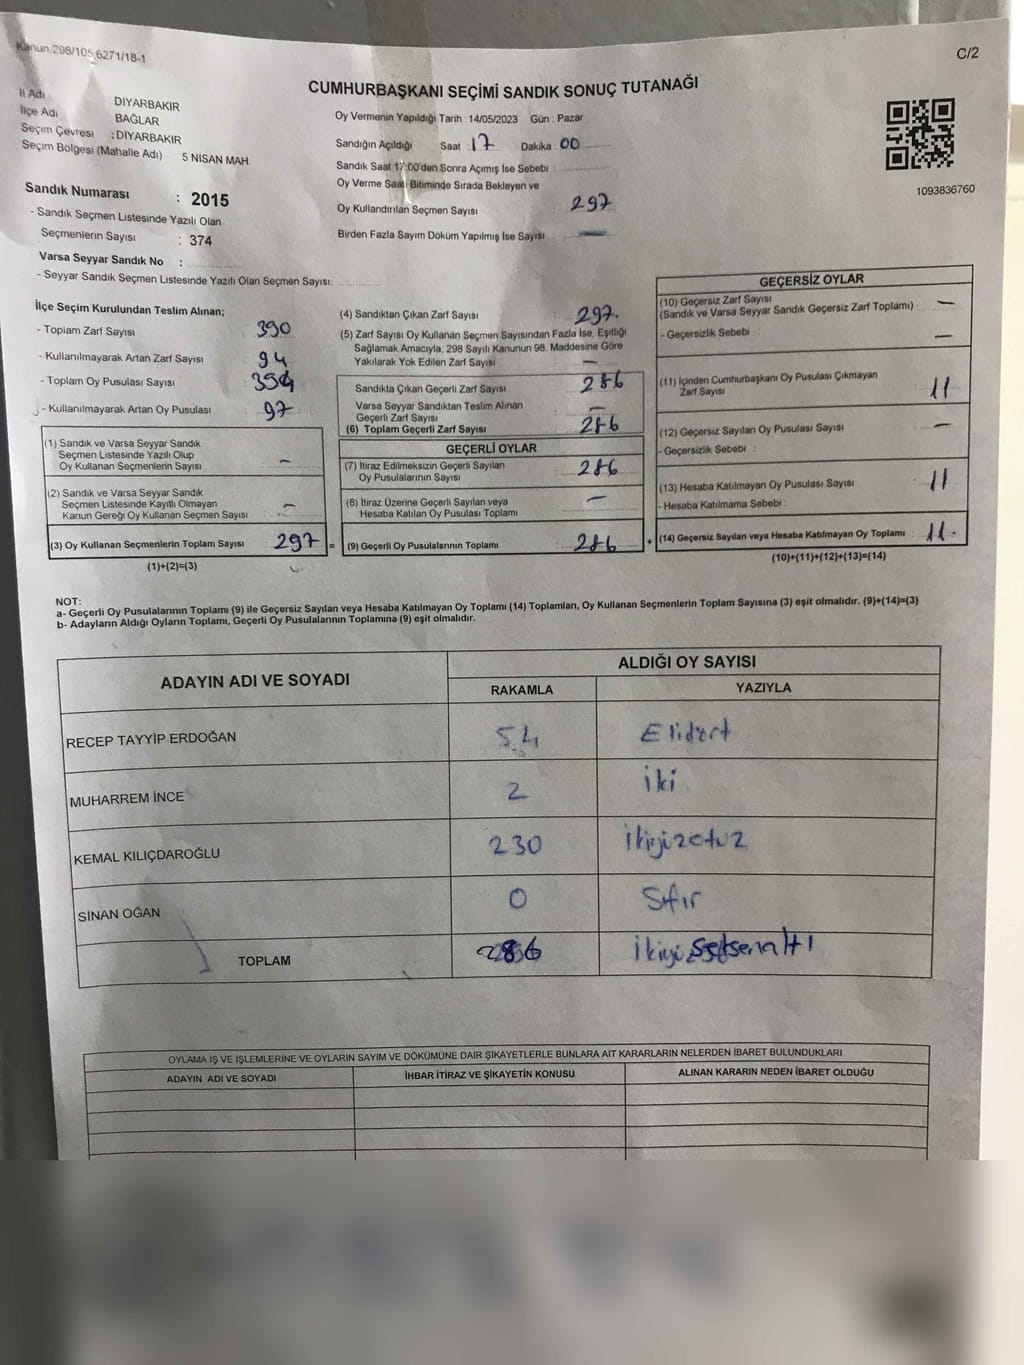 Kanun.298/105,6271/18-1
C/2
İl Adı DİYARBAKIR
İlçe Adı BAĞLAR
Seçim Çevresi : DİYARBAKIR
Seçim Bölgesi (Mahalle Adı) 5 NİSAN MAH.
CUMHURBAŞKANI SEÇİMİ SANDIK SONUÇ TUTANAĞI
Oy Vermenin Yapıldığı Tarih : 14/05/2023 Gün : Pazar
Sandığın Açıldığı Saat : 17 Dakika : 00
Sandık Saat 17:00'den Sonra Açımış İse Sebebi :
Oy Verme Saati Bitiminde Sırada Bekleyen ve
Oy Kullandırılan Seçmen Sayısı : 297
Birden Fazla Sayım Döküm Yapılmış İse Sayısı : —
1093836760
Sandık Numarası : 2015
- Sandık Seçmen Listesinde Yazılı Olan
Seçmenlerin Sayısı : 374
Varsa Seyyar Sandık No :
- Seyyar Sandık Seçmen Listesinde Yazılı Olan Seçmen Sayısı:
İlçe Seçim Kurulundan Teslim Alınan;
- Toplam Zarf Sayısı : 390
- Kullanılmayarak Artan Zarf Sayısı : 94
- Toplam Oy Pusulası Sayısı :
- Kullanılmayarak Artan Oy Pusulası : 97
(1) Sandık ve Varsa Seyyar Sandık
Seçmen Listesinde Yazılı Olup
Oy Kullanan Seçmenlerin Sayısı : —
(2) Sandık ve Varsa Seyyar Sandık
Seçmen Listesinde Kayıtlı Olmayan
Kanun Gereği Oy Kullanan Seçmen Sayısı : —
(3) Oy Kullanan Seçmenlerin Toplam Sayısı : 297 =
(1)+(2)=(3)
(4) Sandıktan Çıkan Zarf Sayısı : 297.
(5) Zarf Sayısı Oy Kullanan Seçmen Sayısından Fazla İse, Eşitliği
Sağlamak Amacıyla, 298 Sayılı Kanunun 98. Maddesine Göre
Yakılarak Yok Edilen Zarf Sayısı : —
Sandıkta Çıkan Geçerli Zarf Sayısı : 286
Varsa Seyyar Sandıktan Teslim Alınan
Geçerli Zarf Sayısı : —
(6) Toplam Geçerli Zarf Sayısı : 286
GEÇERLİ OYLAR
(7) İtiraz Edilmeksizin Geçerli Sayılan
Oy Pusulalarının Sayısı : 286
(8) İtiraz Üzerine Geçerli Sayılan veya
Hesaba Katılan Oy Pusulası Toplamı : —
(9) Geçerli Oy Pusulalarının Toplamı : 286 +
GEÇERSİZ OYLAR
(10) Geçersiz Zarf Sayısı
(Sandık ve Varsa Seyyar Sandık Geçersiz Zarf Toplamı) : —
- Geçersizlik Sebebi : —
(11) İçinden Cumhurbaşkanı Oy Pusulası Çıkmayan
Zarf Sayısı : 11
(12) Geçersiz Sayılan Oy Pusulası Sayısı : —
- Geçersizlik Sebebi :
(13) Hesaba Katılmayan Oy Pusulası Sayısı : 11
- Hesaba Katılmama Sebebi :
(14) Geçersiz Sayılan veya Hesaba Katılmayan Oy Toplamı : 11.
(10)+(11)+(12)+(13)=(14)
NOT:
a- Geçerli Oy Pusulalarının Toplamı (9) ile Geçersiz Sayılan veya Hesaba Katılmayan Oy Toplamı (14) Toplamları, Oy Kullanan Seçmenlerin Toplam Sayısına (3) eşit olmalıdır. (9)+(14)=(3)
b- Adayların Aldığı Oyların Toplamı, Geçerli Oy Pusulalarının Toplamına (9) eşit olmalıdır.
ADAYIN ADI VE SOYADI ALDIĞI OY SAYISI
RAKAMLA YAZIYLA
RECEP TAYYİP ERDOĞAN 54 Ellidört
MUHARREM İNCE 2 İki
KEMAL KILIÇDAROĞLU 230 İkiyüzotuz
SİNAN OĞAN 0 Sıfır
TOPLAM 286 İkiyüzseksenaltı
OYLAMA İŞ VE İŞLEMLERİNE VE OYLARIN SAYIM VE DÖKÜMÜNE DAİR ŞİKAYETLERLE BUNLARA AİT KARARLARIN NELERDEN İBARET BULUNDUKLARI
ADAYIN ADI VE SOYADI İHBAR İTİRAZ VE ŞİKAYETİN KONUSU ALINAN KARARIN NEDEN İBARET OLDUĞU